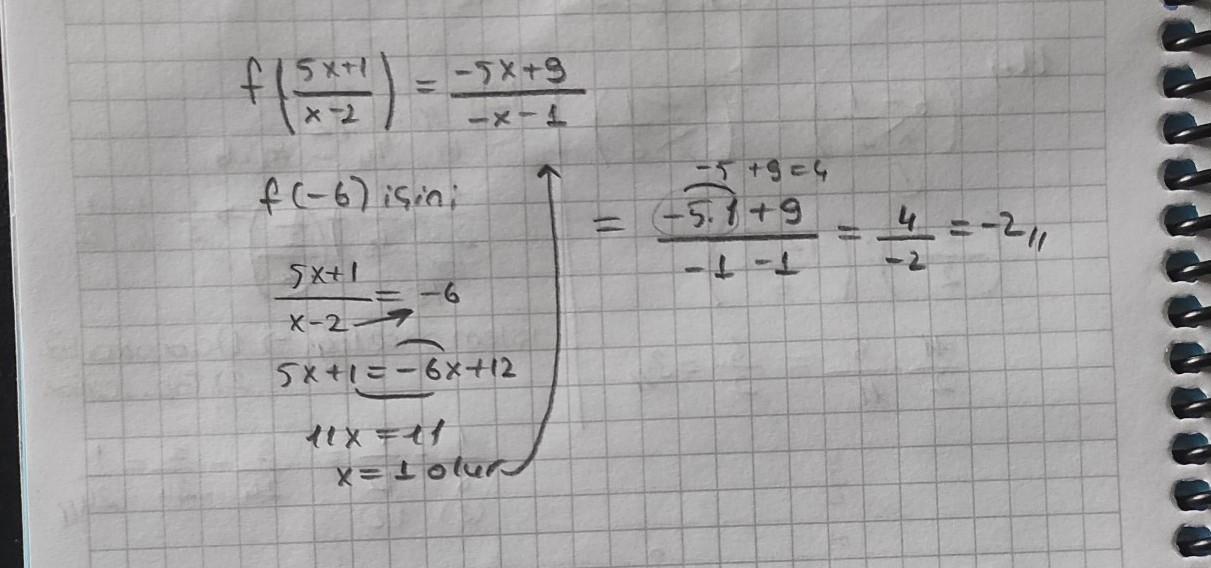 f((5x+1)/(x-2)) = (-5x+9)/(-x-1)
f(-6) için;
(5x+1)/(x-2) = -6
5x+1 = -6x+12
11x = 11
x = 1 olur
-5 +9 = 4
= (-5.1+9)/(-1-1) = 4/-2 = -2,,